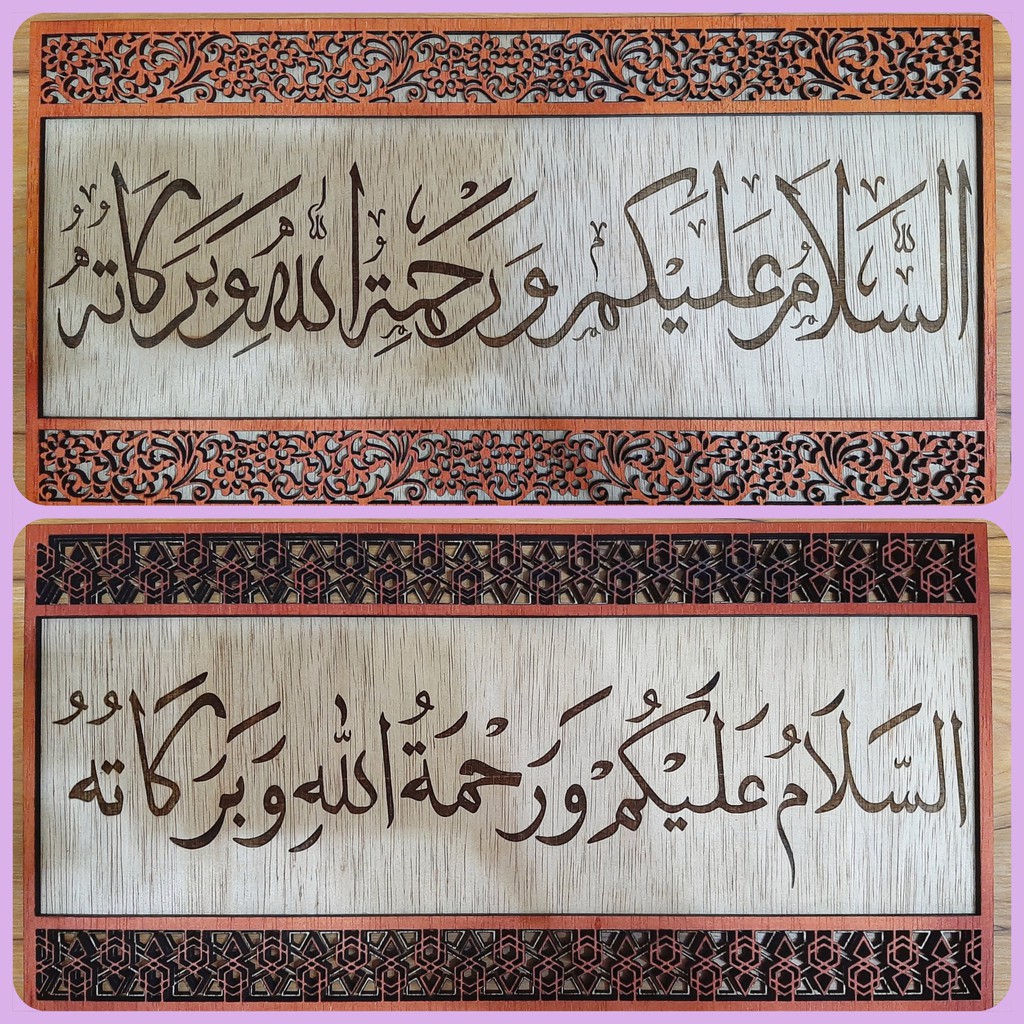 السَّلَامُ عَلَيْكُمْ وَرَحْمَةُ اللهِ وَبَرَكَاتُهُ
السَّلَامُ عَلَيْكُمْ وَرَحْمَةُ اللهِ وَبَرَكَاتُهُ